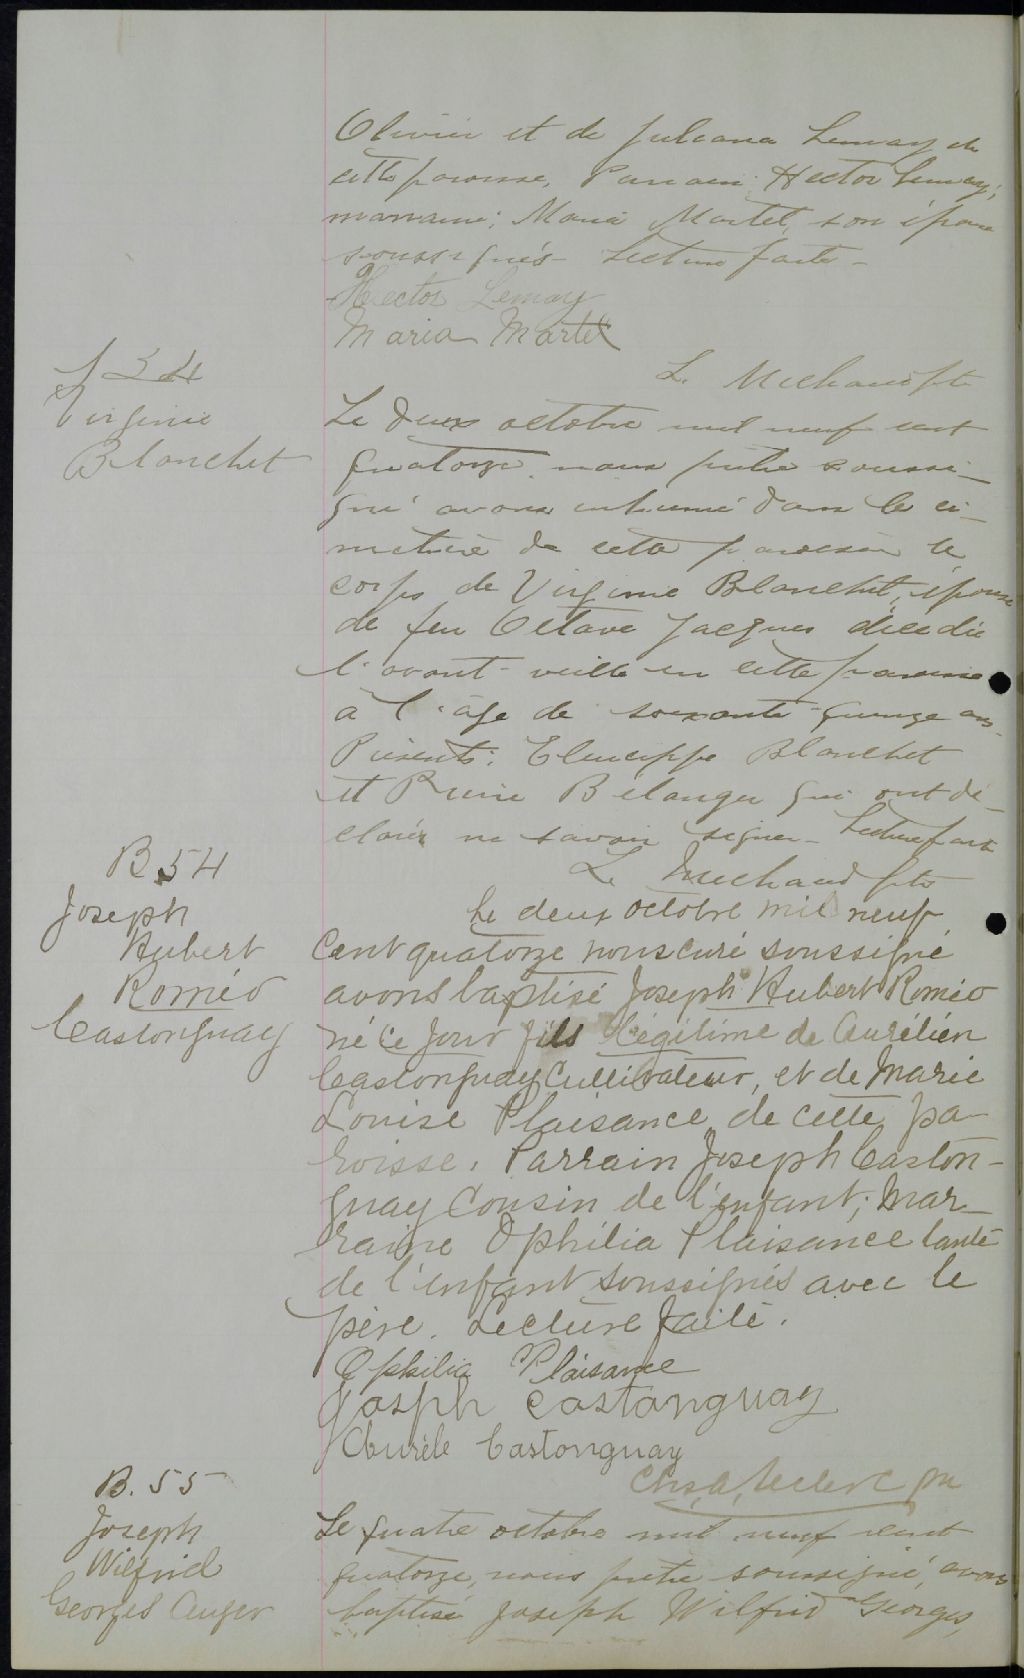 Olivier et de Juliana Lemay de
cette paroisse, Parrain: Hector Lemay,
marraine: Maria Martel, son épouse
soussignés. Lecture faite.
Hector Lemay
Maria Martel
L. Michaud ptr
S 34
Virginie
Blanchet
Le deux octobre mil neuf cent
quatorze nous prêtre soussi-
gné avons inhumé dans le ci-
metière de cette paroisse le
corps de Virginie Blanchet, épouse
de feu Octave Jacques décédée
l'avant-veille en cette paroisse
à l'âge de soixante-quinze ans.
Présents: Eleucippe Blanchet
et Bélanger qui ont dé-
claré ne savoir signer. Lecture faite
L. Michaud ptr
B 54
Joseph
Hubert
Roméo
Castonguay
Le deux octobre mil neuf
cent quatorze nous curé soussigné
avons baptisé Joseph Hubert Roméo
né ce jour fils légitime de Aurélien
Castonguay Cultivateur, et de Marie
Louise Plaisance de cette pa-
roisse. Parrain Joseph Caston-
guay Cousin de l'enfant; Mar-
raine Ophilia Plaisance tante
de l'enfant soussignés avec le
père. Lecture faite.
Ophilia Plaisance
Josph Castonguay
Aurèle Castonguay
Chs. A. Leclerc ptr
B. 55
Joseph
Wilfrid
Georges Auger
Le quatre octobre mil neuf cent
quatorze, nous prêtre soussigné, avons
baptisé Joseph Wilfrid Georges,